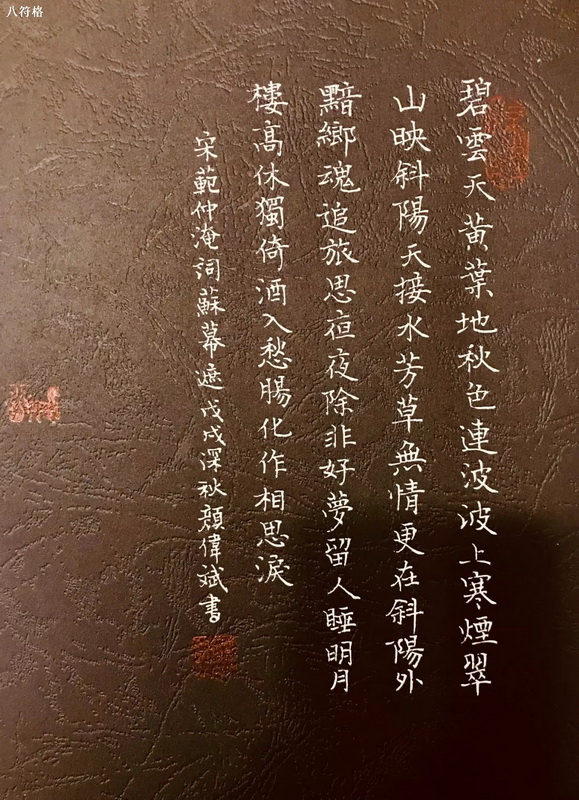 八符格
碧雲天黃葉地秋色連波波上寒煙翠
山映斜陽天接水芳草無情更在斜陽外
黯鄉魂追旅思亱夜除非好夢留人睡明月
樓高休獨倚酒入愁腸化作相思淚
宋範仲淹詞蘇幕遮戊戌深秋顏偉斌書